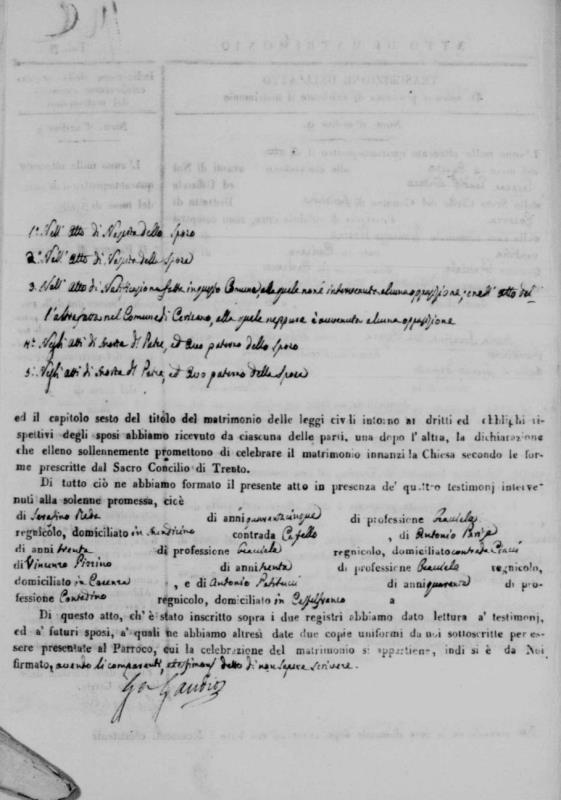 1.º Nell' atto di Nascita dello Sposo
2.º Nell' atto di Nascita della Sposa
3. Nell' atto di Notificazione fatta in questo Comune, alla quale non è intervenuta alcuna opposizione; e nell' atto del-
l'altra fatta nel Comune di Cerisano, alla quale neppure è avvenuta alcuna opposizione
4.º Negli atti di morte del Padre, ed Avo paterno dello sposo
5.º Negli atti di morte del Padre, ed Avo paterno della Sposa
ed il capitolo sesto del titolo del matrimonio delle leggi civili intorno ai dritti ed obblighi ri-
spettivi degli sposi abbiamo ricevuto da ciascuna delle parti, una dopo l'altra, la dichiarazione
che elleno sollennemente promettono di celebrare il matrimonio innanzi la Chiesa secondo le for-
me prescritte dal Sacro Concilio di Trento.
Di tutto ciò ne abbiamo formato il presente atto in presenza de' quattro testimonj interve-
nuti alla solenne promessa, cioè
di Serafino Reda di anni quarantacinque di professione
regnicolo, domiciliato in Mendicino contrada , di Antonio
di anni trenta di professione regnicolo, domiciliato contrada
di Vincenzo di anni trenta di professione regnicolo,
domiciliato in Cosenza , e di Antonio Petitucci di anni quaranta di pro-
fessione Contadino regnicolo, domiciliato in Castelfranco a
Di questo atto, ch'è stato inscritto sopra i due registri abbiamo dato lettura a' testimonj,
ed a' futuri sposi, a' quali ne abbiamo altresì date due copie uniformi da noi sottoscritte per es-
sere presentate al Parroco, cui la celebrazione del matrimonio si appartiene, indi si è da Noi
firmato, avendo li comparenti, e testimonj detto di non sapere scrivere.
Gaudio